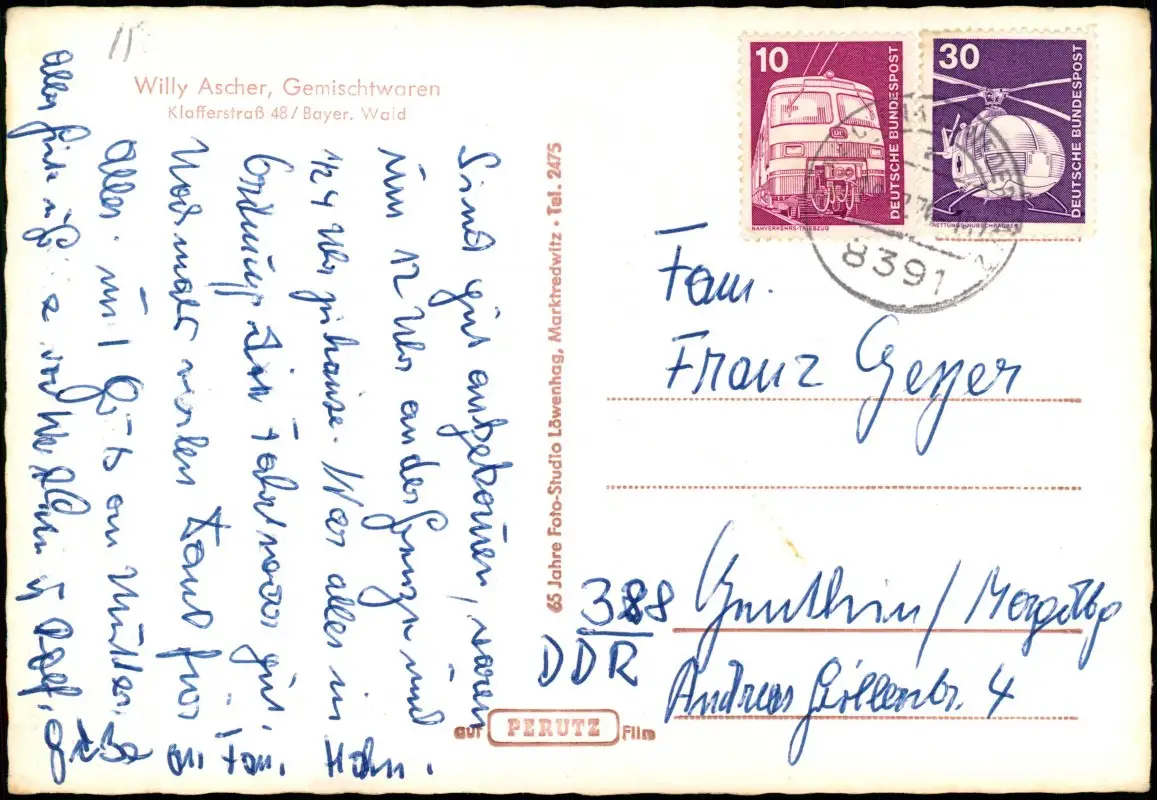 Willy Ascher, Gemischtwaren
Klafferstraß 48/Bayer. Wald
Sind gut angekommen, waren
um 12 Uhr an der Grenze und
1/2 4 Uhr zuhause. War alles in
Ordnung. Die Fahrt war gut.
Nochmals vielen Dank für
alles. und Gruß an Mutter.
Alles Gute
Fam. Hahn.
65 Jahre Foto-Studio Löwenhag, Marktredwitz · Tel. 2475
auf PERUTZ Film
10
DEUTSCHE BUNDESPOST
NAHVERKEHRS-TRIEBZUG
30
DEUTSCHE BUNDESPOST
RETTUNGSHUBSCHRAUBER
8391
Fam.
Franz Geyer
388 Genthin/Magdbg
DDR
4